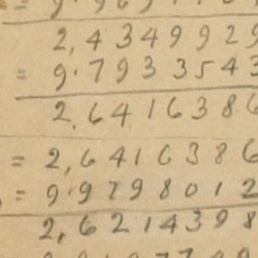 2,4349929
= 9.7933543
2.6416386
= 2,6416386
= 9.9798012
2,6214398